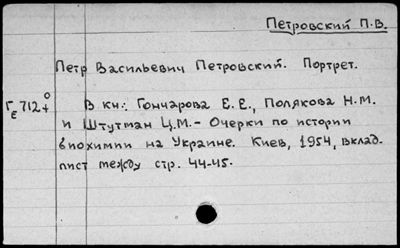 Петровский П.В.
Петр Васильевич Петровский. Портрет.
Г 712 0
Е 4
В кн.: Гончарова Е.Е., Полякова Н.М.
и Штутман Ц.М. - Очерки по истории
биохимии на Украине. Киев, 1954, вклад.
лист между стр. 44-45.